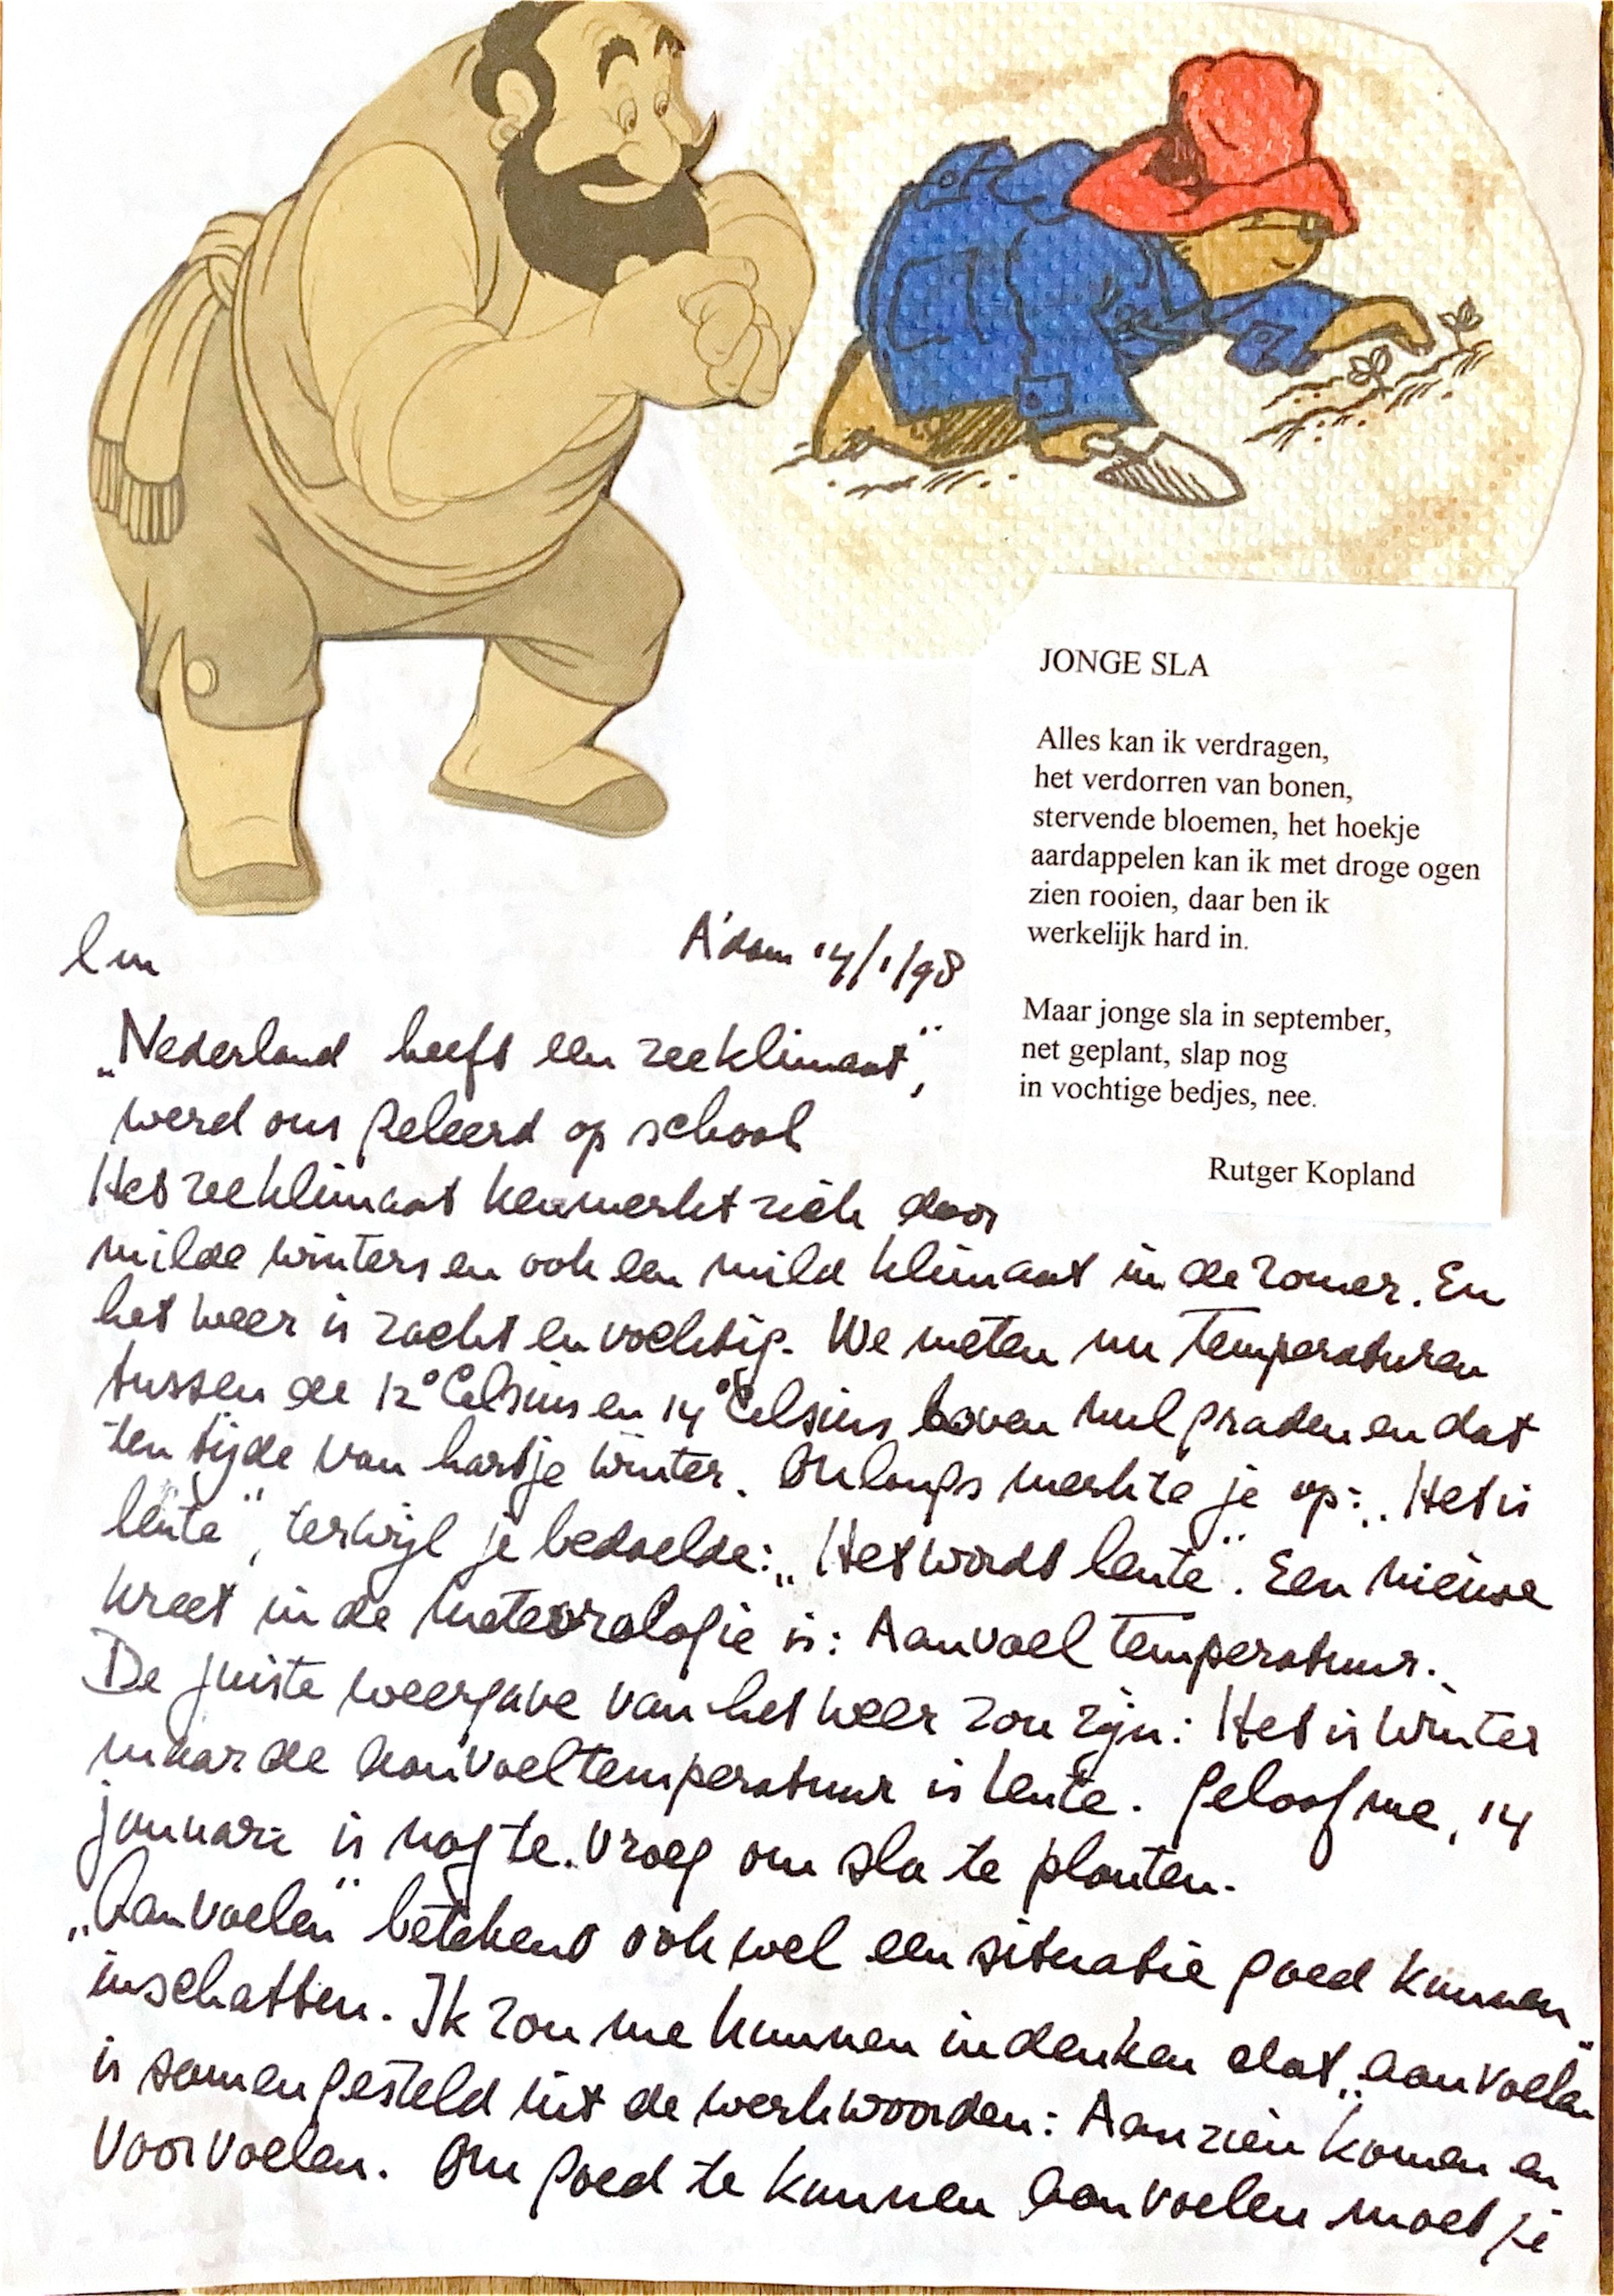 JONGE SLA
Alles kan ik verdragen,
het verdorren van bonen,
stervende bloemen, het hoekje
aardappelen kan ik met droge ogen
zien rooien, daar ben ik
werkelijk hard in.
Maar jonge sla in september,
net geplant, slap nog
in vochtige bedjes, nee.
Rutger Kopland
A'dam 14/1/98
„Nederland heeft een zeeklimaat”,
werd ons geleerd op school
Het zeeklimaat kenmerkt zich door
milde winters en ook een mild klimaat in de zomer. En
het weer is zacht en vochtig. We meten nu temperaturen
tussen de 12° Celsius en 14° Celsius boven nul graden en dat
ten tijde van hartje winter. Onlangs merkte je op: „Het is
lente”, terwijl je bedoelde: „Het wordt lente”. Een nieuwe
kreet in de meteorologie is: Aanvoel temperatuur.
De juiste weergave van het weer zou zijn: Het is winter
maar de aanvoeltemperatuur is lente. Geloof me, 14
januari is nog te vroeg om sla te planten.
„Aanvoelen” betekent ook wel een situatie goed kunnen
inschatten. Ik zou me kunnen indenken dat „aanvoelen”
is samengesteld uit de werkwoorden: Aan zien komen en
Voorvoelen. Om goed te kunnen aanvoelen moet je